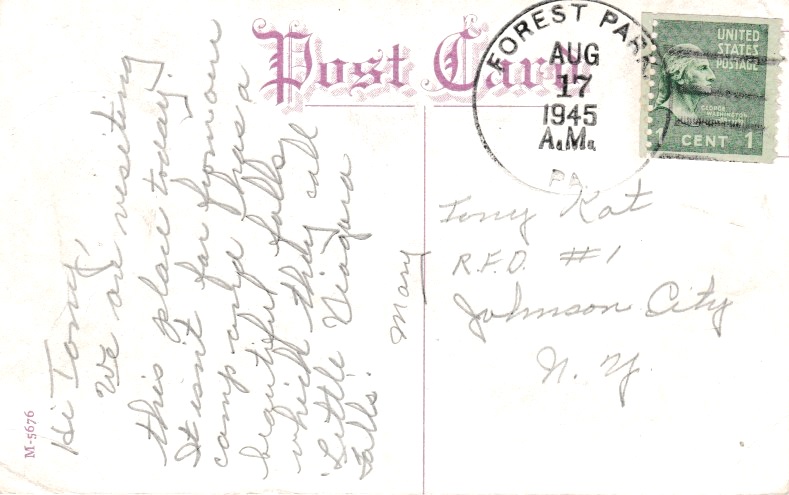 Post Card
FOREST PARK
AUG
17
1945
A.M.
PA.
UNITED
STATES
POSTAGE
GEORGE
WASHINGTON
CENT 1
Hi Tony,
We are viseting
this place today.
It isn't far from our
camp and has a
beautiful falls
which they call
"Little Niagara
Falls.
Mary
Tony Kat
R.F.D. #1
Johnson City
N.Y.
M-5676